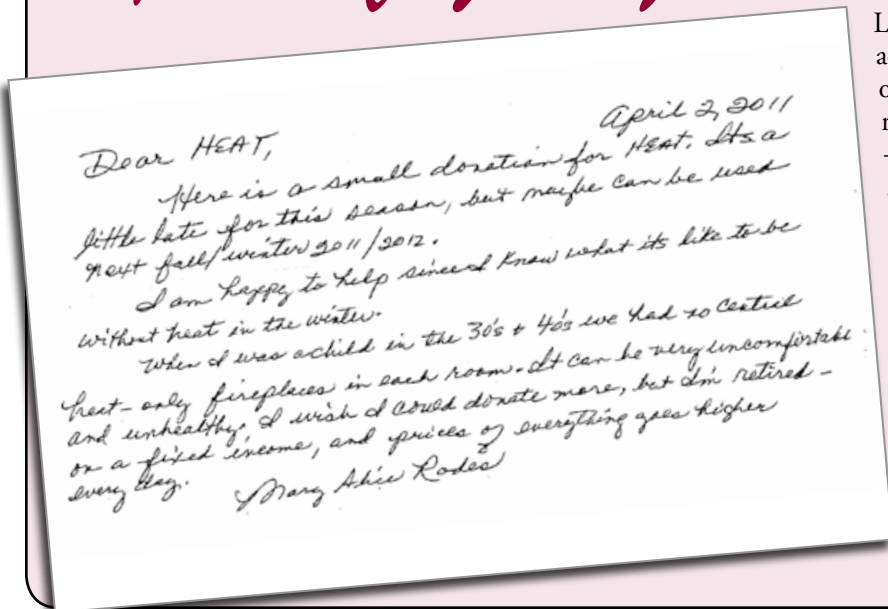 April 2, 2011
Dear HEAT,
Here is a small donation for HEAT. Its a
little late for this season, but maybe can be used
next fall/winter 2011/2012.
I am happy to help since I know what its like to be
without heat in the winter.
When I was a child in the 30's + 40's we had no central
heat - only fireplaces in each room. It can be very uncomfortable
and unhealthy. I wish I could donate more, but I'm retired -
on a fixed income, and prices of everything goes higher
every day.
Mary Alice Rodes